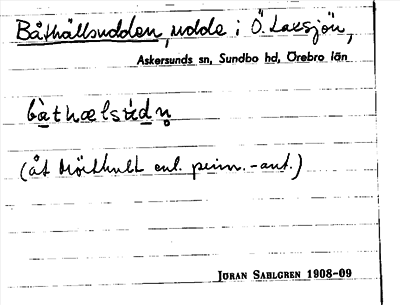 Båthällsudden, udde i Ö. Laxsjön,
Askersunds sn, Sundbo hd, Örebro län
bàthælsùdn̥
(åt Mörthult enl. prim.-ant.)
JÖRAN SAHLGREN 1908-09